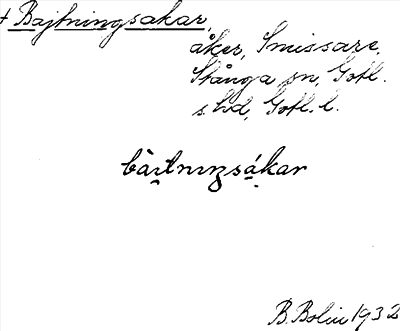 + Bajtningsakar,
åker, Smissare,
Stånga sn, Gotl.
s. hd, Gotl. l.
bài̯tnɪŋsákar
B Bolin 1932